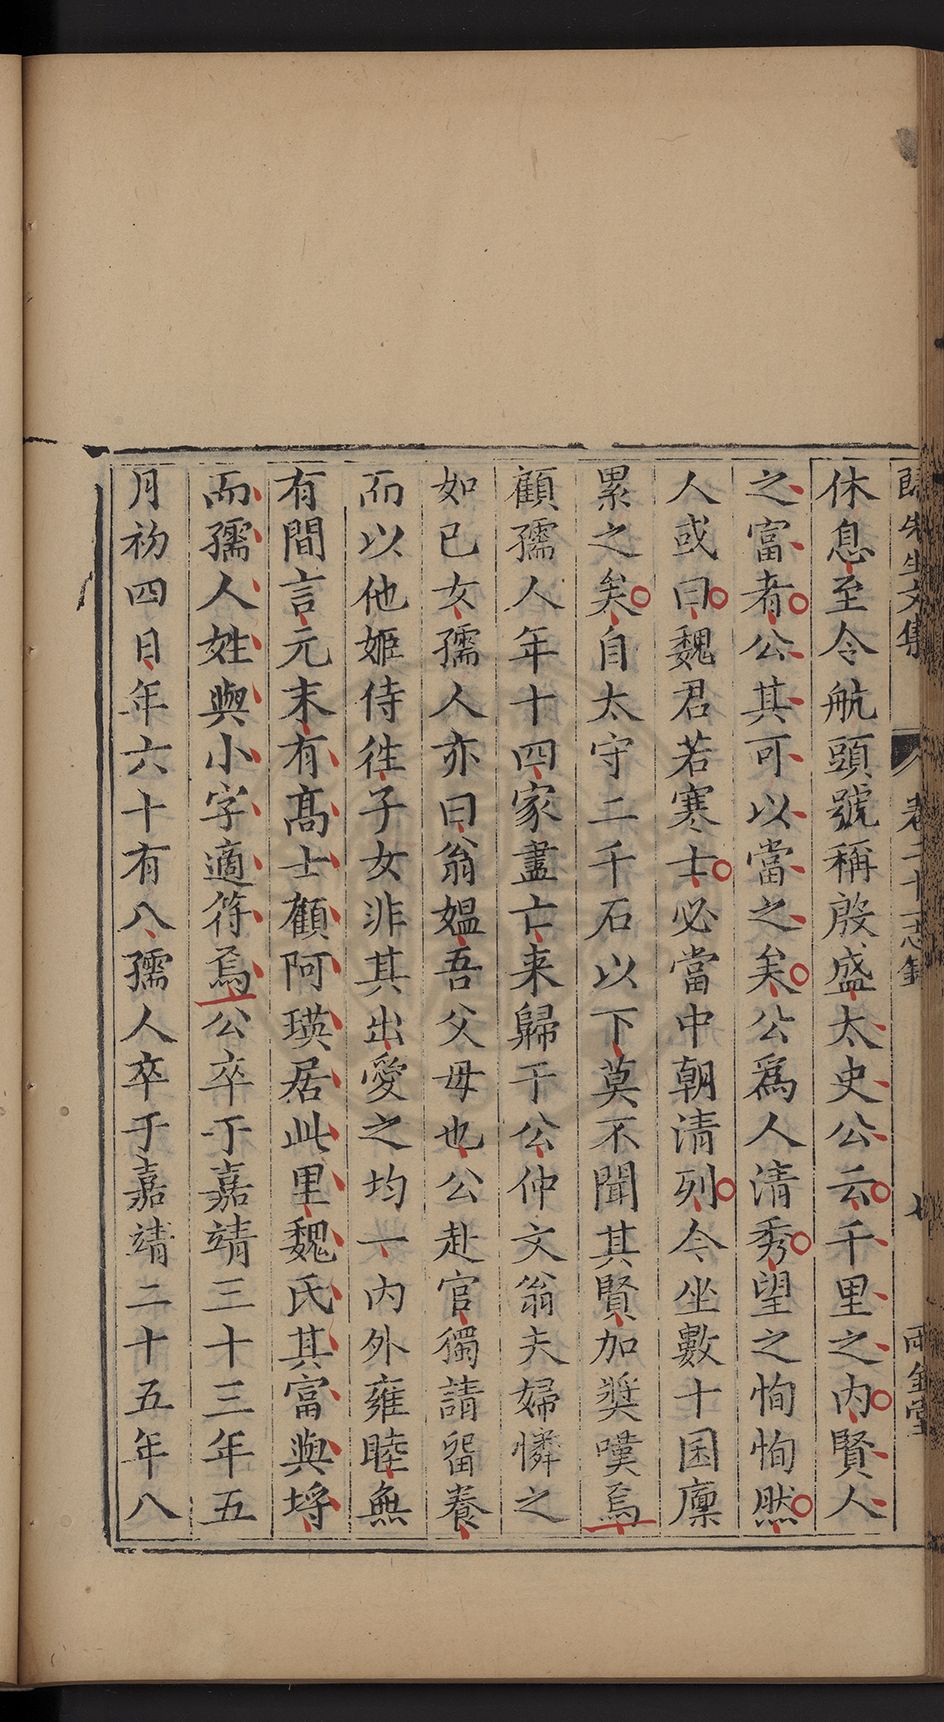 歸先生文集 卷二十志銘 七 雨金堂
休息至今航頭號稱殷盛太史公云千里之內賢人
之富者公其可以當之矣公爲人清秀望之恂恂然
人或曰魏君若寒士必當中朝清列今坐數十囷廩
累之矣自太守二千石以下莫不聞其賢加奬嘆焉
顧孺人年十四家盡亡来歸于公仲文翁夫婦憐之
如已女孺人亦曰翁媼吾父毋也公赴官獨請畱養
而以他姬侍徃子女非其出愛之均一內外雍睦無
有間言元末有髙士顧阿瑛居此里魏氏其富與埓
而孺人姓與小字適符焉公卒于嘉靖三十三年五
月初四日年六十有八孺人卒于嘉靖二十五年八